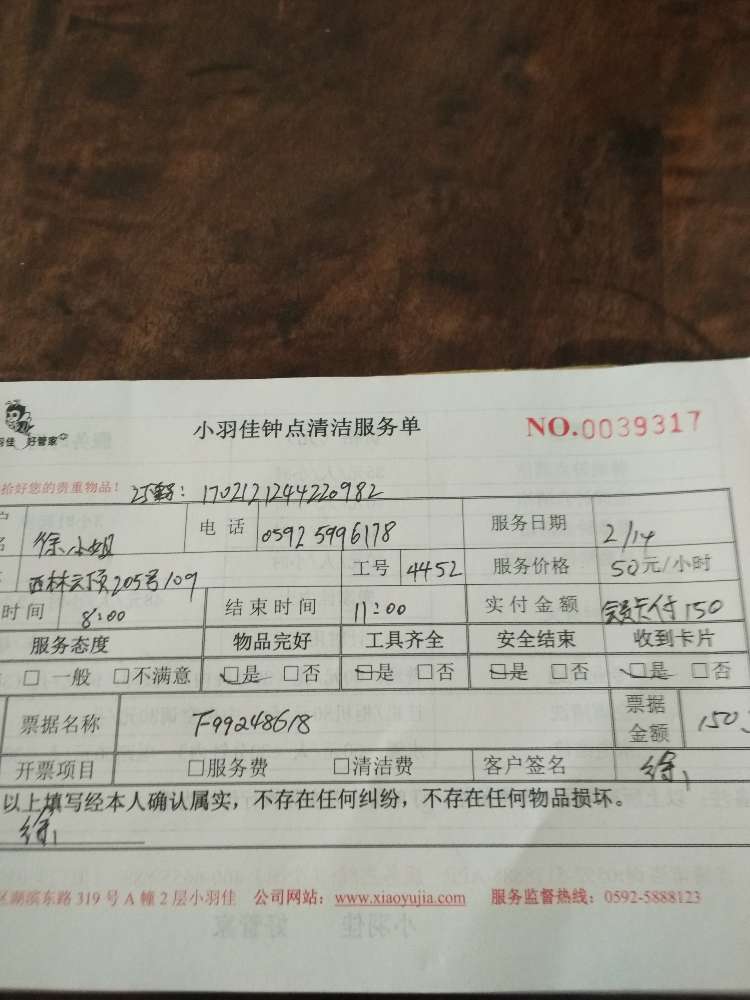 羽佳 好管家
小羽佳钟点清洁服务单 NO.0039317
拾好您的贵重物品! 订单号: 1702121244220982
徐小姐 电话 0592 5996178 服务日期 2/14
西林云顶205号109 工号 4452 服务价格 50元/小时
时间 8:00 结束时间 11:00 实付金额 卡付150
服务态度 物品完好 工具齐全 安全结束 收到卡片
□一般 □不满意 □是 □否 □是 □否 □是 □否 □是 □否
票据名称 F99248618 票据金额 150
开票项目 □服务费 □清洁费 客户签名 徐
以上填写经本人确认属实，不存在任何纠纷，不存在任何物品损坏。
徐
区湖滨东路319号A幢2层小羽佳 公司网站：www.xiaoyujia.com 服务监督热线：0592-5888123